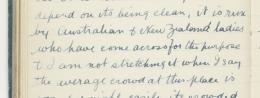 depend on its being clean, it is run
by Australian & New Zealand ladies
who have come across for the purpose
& I am not stretching it when I say
the average crowd at this place is
easily its crowded